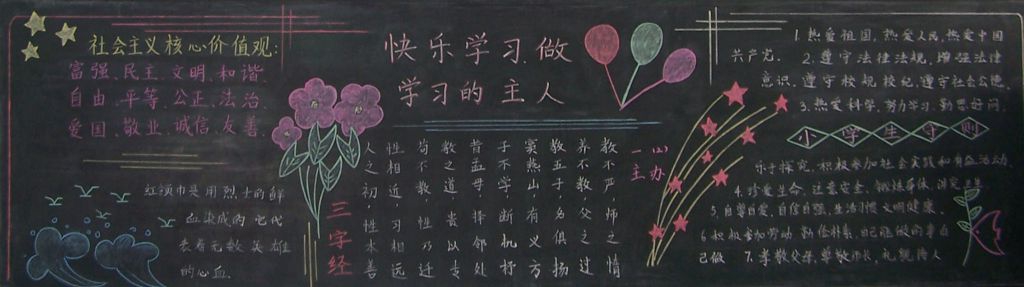 社会主义核心价值观:
富强、民主、文明、和谐
自由、平等、公正、法治
爱国、敬业、诚信、友善
红领巾是用烈士的鲜
血染成的 它代
表着无数英雄
的心血.
快乐学习,做
学习的主人
三字经
人之初,性本善
性相近 习相远
苟不教,性乃迁
教之道 贵以专
昔孟母 择邻处
子不学,断机杼
窦燕山,有义方
教五子,名俱扬
养不教,父之过
教不严,师之情
一(2)
主办
1.热爱祖国,热爱人民,热爱中国
共产党. 2.遵守法律法规,增强法律
意识,遵守校规校纪,遵守社会公德.
3.热爱科学,努力学习,勤思好问,
小学生守则
乐于探究,积极参加社会实践和有益活动.
4.珍爱生命,注意安全,锻炼身体,讲究卫生
5.自尊自爱,自信自强,生活习惯文明健康.
6.积极参加劳动,勤俭朴素,自己能做的事自
己做 7.孝敬父母,尊敬师长,礼貌待人